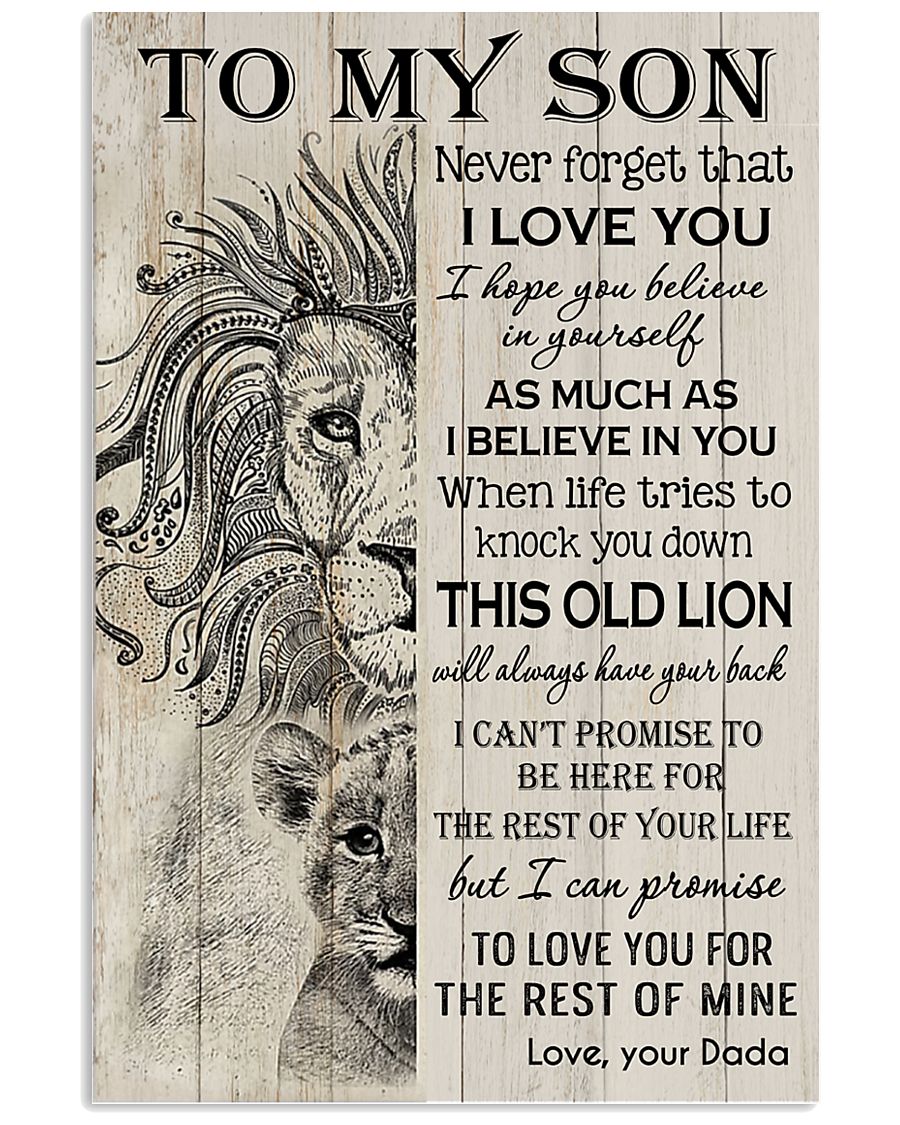 TO MY SON
Never forget that
I LOVE YOU
I hope you believe
in yourself
AS MUCH AS
I BELIEVE IN YOU
When life tries to
knock you down
THIS OLD LION
will always have your back
I CAN'T PROMISE TO
BE HERE FOR
THE REST OF YOUR LIFE
but I can promise
TO LOVE YOU FOR
THE REST OF MINE
Love, your Dada